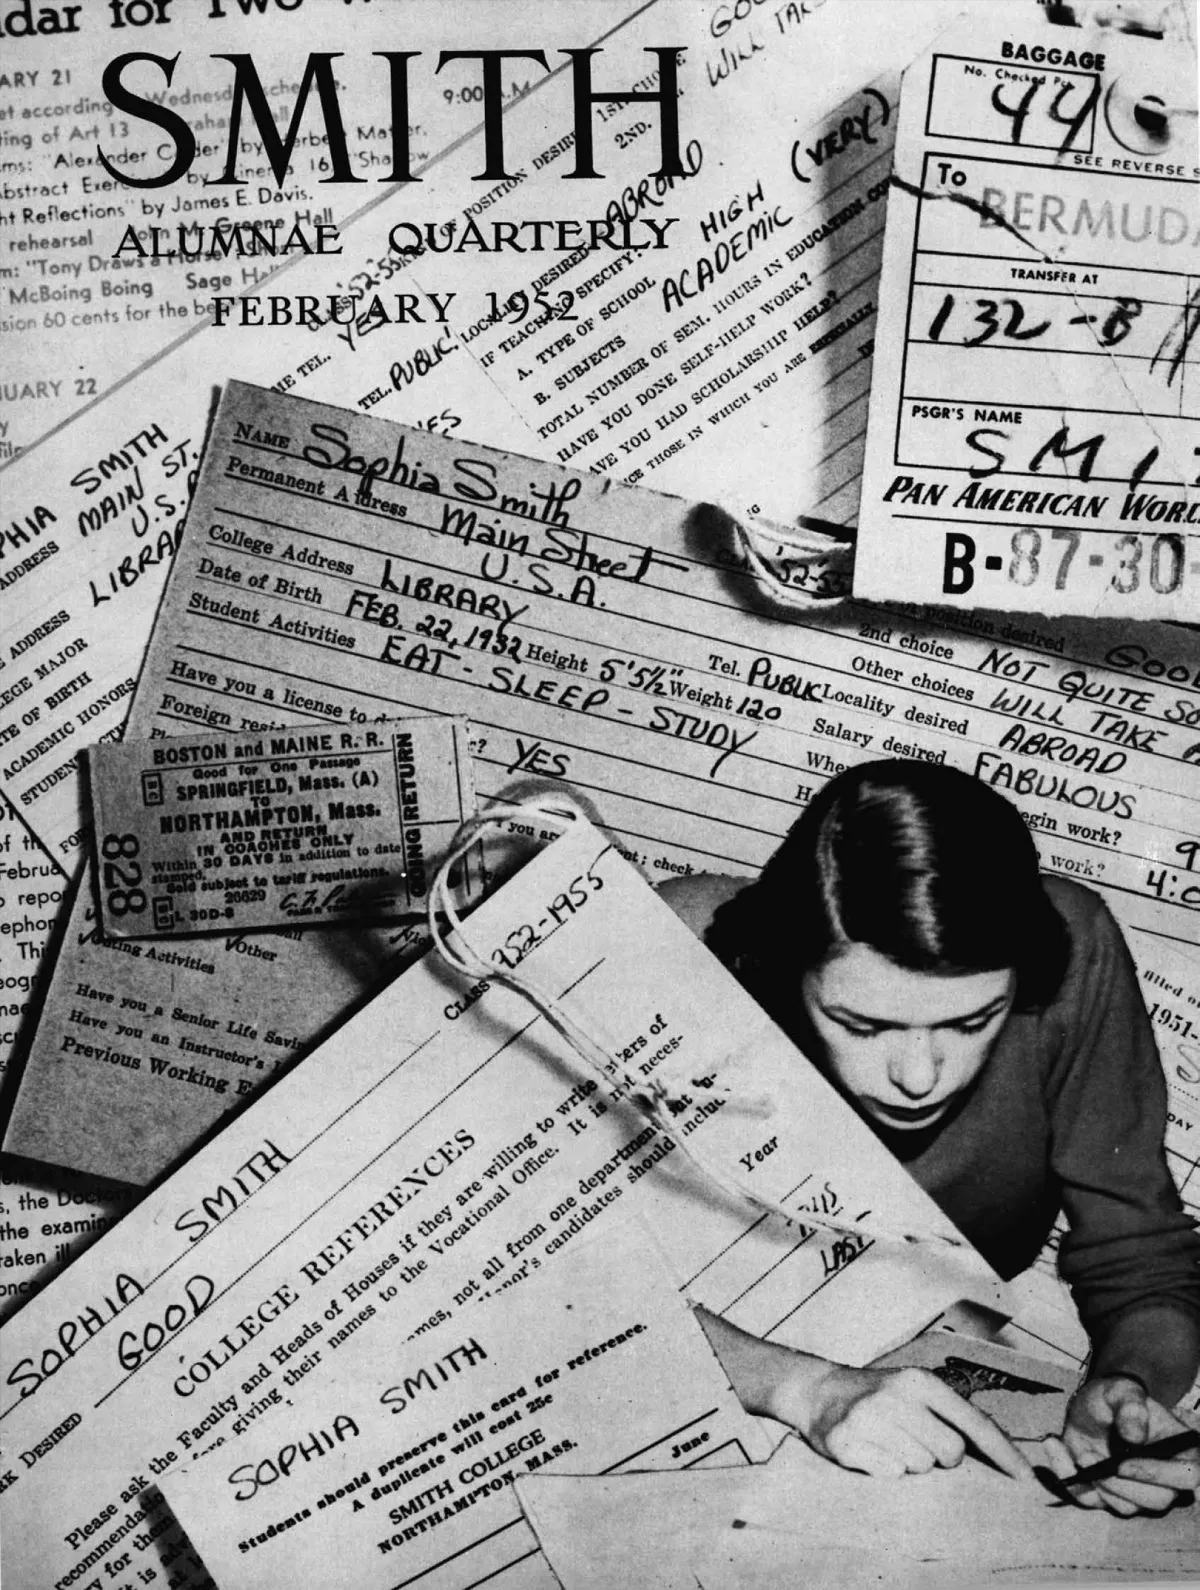 SMITH
ALUMNAE QUARTERLY
FEBRUARY 1952
ARY 21
9:00 A.M.
ting of Art 13
Abstract Exer
ht Reflections" by James E. Davis.
rehearsal John M. Greene Hall
m: "Tony Draws a Horse"
"McBoing Boing Sage Hall
sion 60 cents for the be
NUARY 22
1ST CHOICE
2ND.
GOO
WILL TAK
OF POSITION DESIRED
LOCALITY DESIRED ABROAD
IF TEACHING SPECIFY:
A. TYPE OF SCHOOL HIGH (VERY)
B. SUBJECTS ACADEMIC
TOTAL NUMBER OF SEM. HOURS IN EDUCATION CO
HAVE YOU DONE SELF-HELP WORK?
HAVE YOU HAD SCHOLARSHIP HELP?
CE THOSE IN WHICH YOU ARE ESPECIALLY
CLASS '52-55
ME TEL. YES
TEL. PUBLIC!
BAGGAGE
No. Checked Pcs.
44
SEE REVERSE S
To
BERMUDA
TRANSFER AT
132-B
PSGR'S NAME
SMIT
PAN AMERICAN WORL
B-87-30-
PHIA SMITH
ADDRESS MAIN ST.
U.S.
LIBRA
E ADDRESS
EGE MAJOR
TE OF BIRTH
ACADEMIC HONORS
STUDEN
NAME Sophia Smith
Permanent Address Main Street
U.S.A.
College Address LIBRARY
Date of Birth FEB. 22, 1932 Height 5'5½" Weight 120
Student Activities EAT - SLEEP - STUDY
Have you a license to d
Foreign resi
YES
'52-55
position desired GOOD
2nd choice NOT QUITE SO
Other choices WILL TAKE A
Tel. PUBLIC Locality desired ABROAD
Salary desired FABULOUS
Whe
egin work? 9
work? 4:0
you are
ent; check
BOSTON and MAINE R. R.
Good for One Passage
SPRINGFIELD, Mass. (A)
TO
NORTHAMPTON, Mass.
AND RETURN
IN COACHES ONLY
Within 30 DAYS in addition to date
stamped.
Sold subject to tariff regulations.
26629
L 30D-8
828
GOING RETURN
of th
Februa
repo
ephon
Thi
ting Activities
Other
Have you a Senior Life Savi
Have you an Instructor's
Previous Working E
s, the Doctors
the examin
taken ill
once
CLASS 1952-1955
SOPHIA SMITH
RK DESIRED GOOD
COLLEGE REFERENCES
Please ask the Faculty and Heads of Houses if they are willing to write letters of
recommendatio
giving their names to the Vocational Office. It is not neces-
y for them
mes, not all from one department
candidates should inclu
Year
LAST
1951-
DAY
SOPHIA SMITH
Students should preserve this card for reference.
A duplicate will cost 25c
SMITH COLLEGE
NORTHAMPTON, MASS.
June